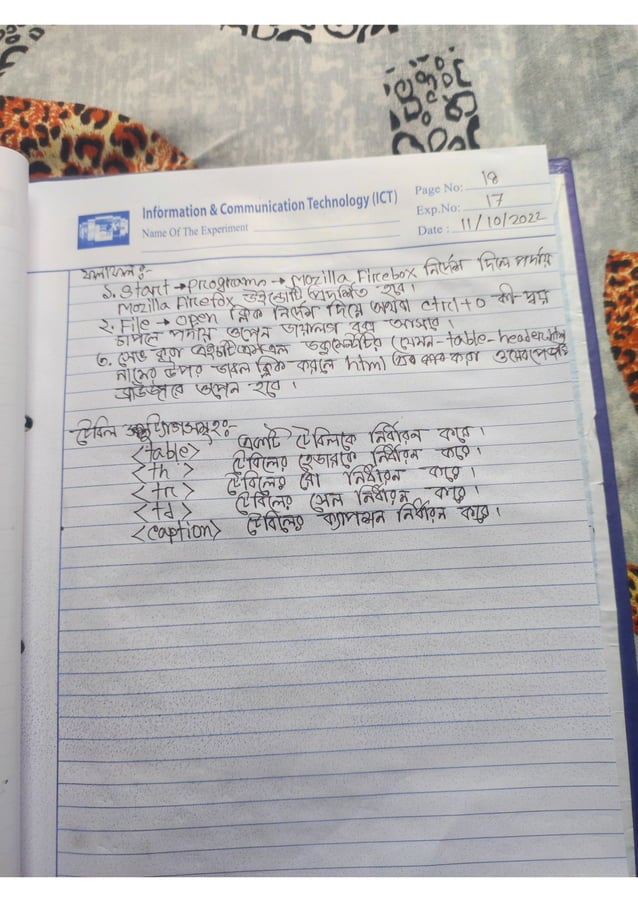 Information & Communication Technology (ICT)
Name Of The Experiment
Page No: 18
Exp.No: 17
Date : 11/10/2022
ফলাফল:-
১. Start → Programn → Mozilla Firebox নির্দেশ দিলে পর্দায়
Mozilla Firefox উইন্ডোটি প্রদর্শিত হবে।
২. File → open ক্লিক নির্দেশ দিয়ে অথবা ctrl+o কী-দ্বয়
চাপলে পর্দায় ওপেন ডায়ালগ বক্স আসবে।
৩. সেভ করা এইচটিএমএল ডকুমেন্টটির (যেমন-table-header.html
নামের উপর ডাবল ক্লিক করলে html এর কাজ করা ওয়েবপেজটি
ব্রাউজারে ওপেন হবে।
টেবিল ট্যাগসমূহ:-
<table> একটি টেবিলকে নির্ধারন করে।
<th> টেবিলের হেডারকে নির্ধারন করে।
<tr> টেবিলের রো নির্ধারন করে।
<td> টেবিলের সেল নির্ধারন করে।
<caption> টেবিলের ক্যাপশন নির্ধারন করে।